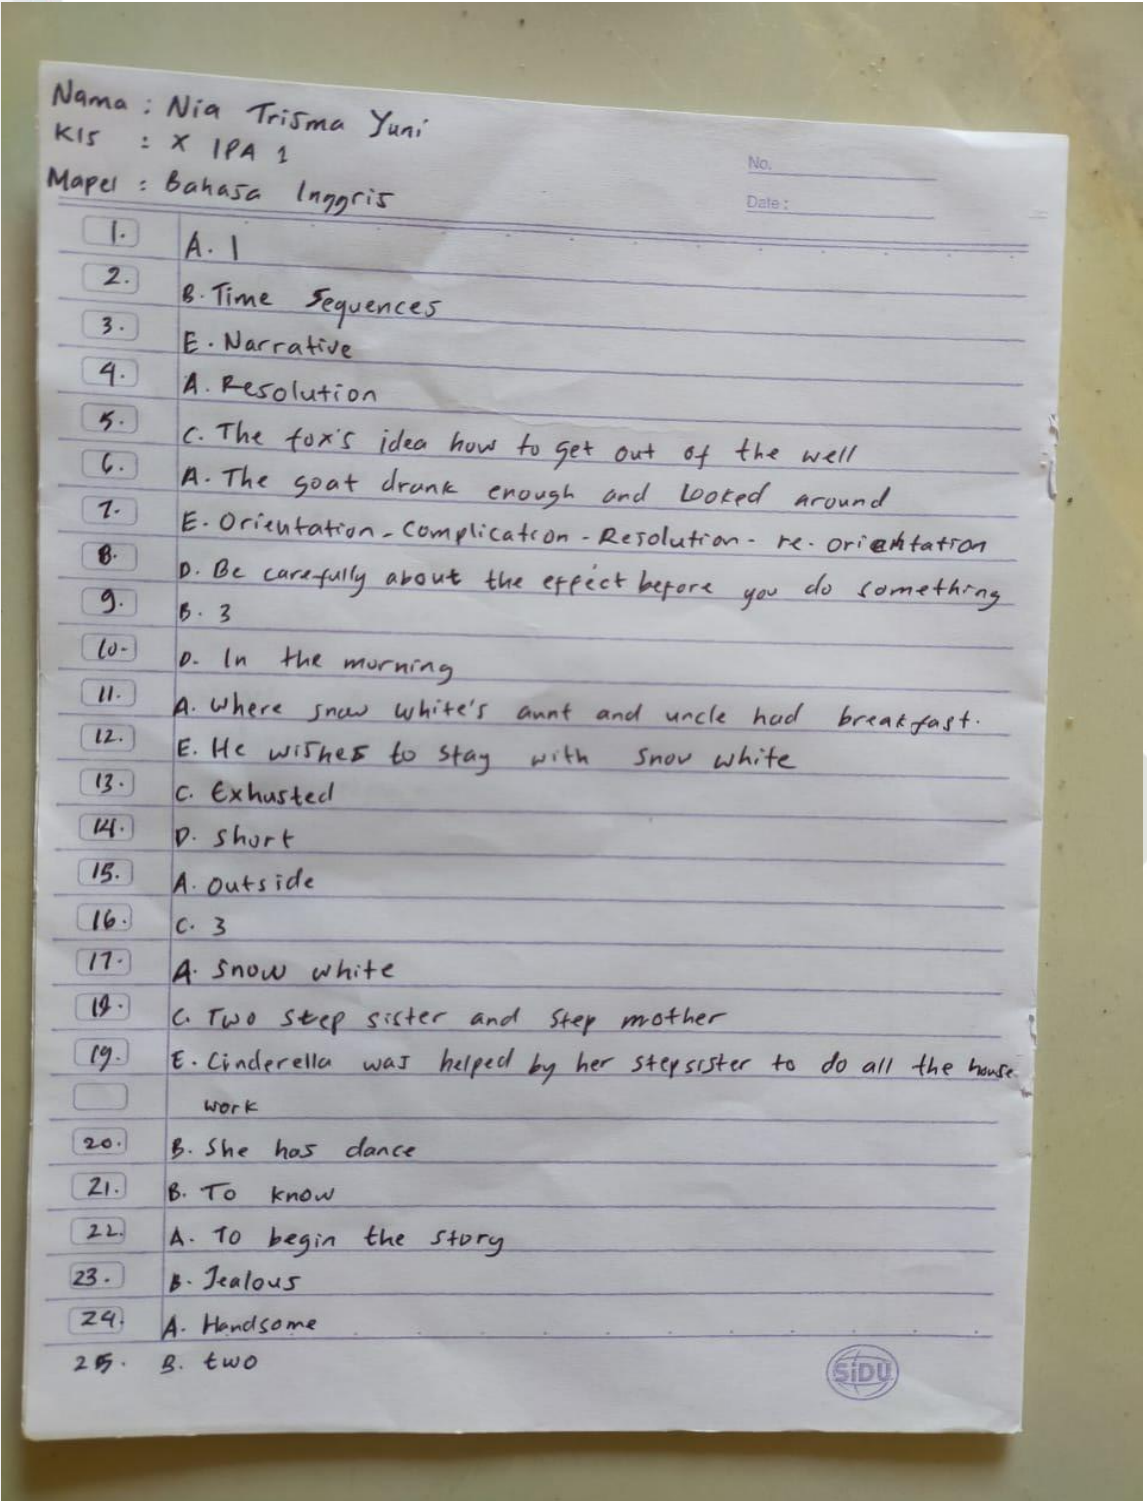 Nama : Nia Trisma Yuni
Kls : X IPA 1
Mapel : Bahasa Inggris
No.
Date :
1. A. 1
2. B. Time Sequences
3. E. Narrative
4. A. Resolution
5. C. The fox's idea how to get out of the well
6. A. The goat drank enough and looked around
7. E. Orientation - Complication - Resolution - re-orientation
8. D. Be carefully about the effect before you do something
9. B. 3
10. D. In the morning
11. A. Where snow white's aunt and uncle had breakfast.
12. E. He wishes to stay with snow white
13. C. Exhusted
14. D. short
15. A. outside
16. C. 3
17. A. snow white
18. C. Two step sister and step mother
19. E. Cinderella was helped by her stepsister to do all the house
work
20. B. She has dance
21. B. To know
22. A. To begin the story
23. B. Jealous
24. A. Handsome
25. B. two
SiDU